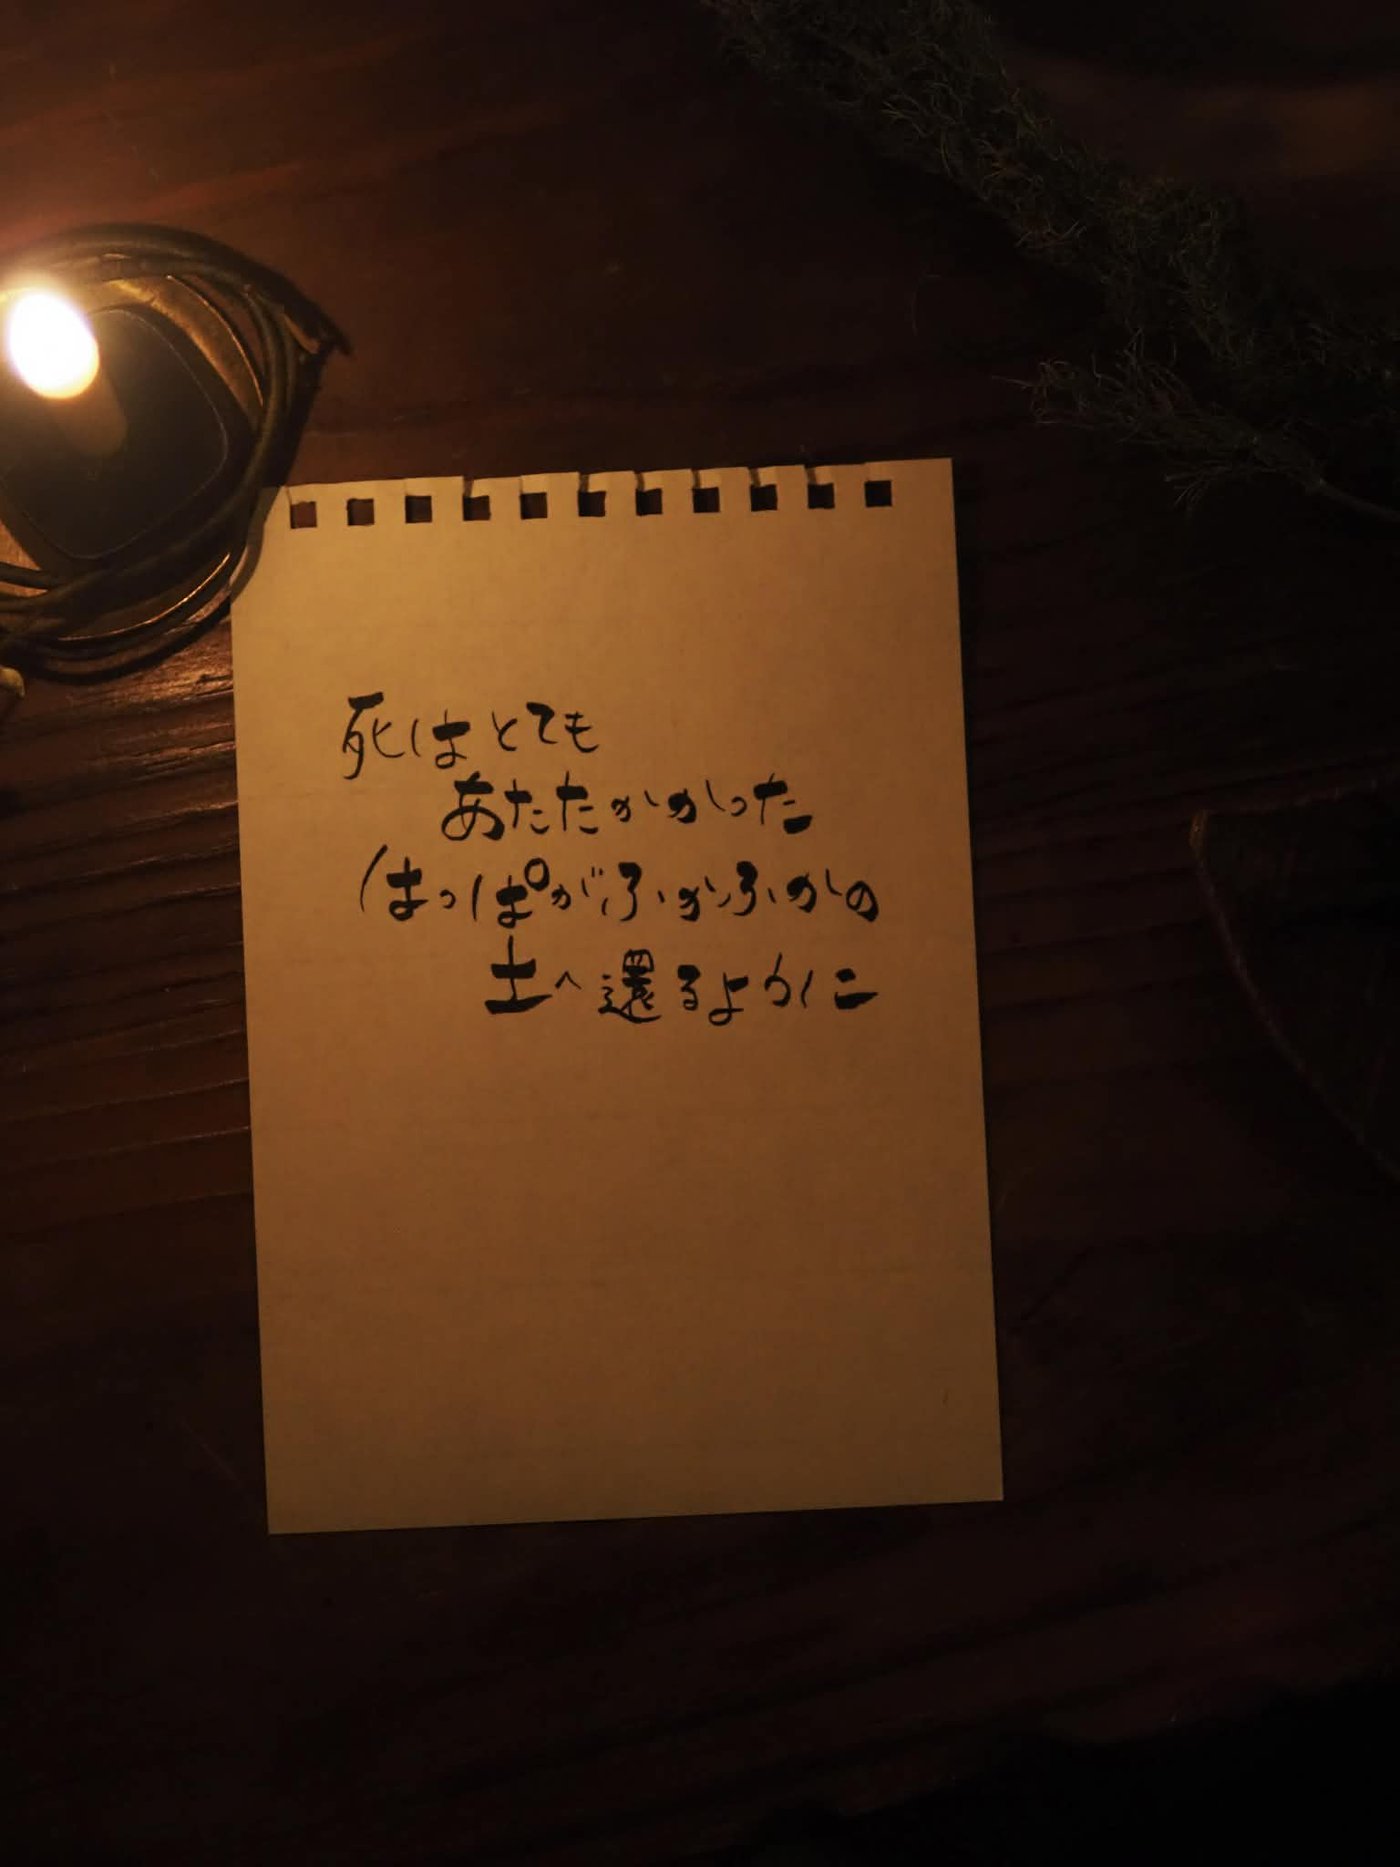 死はとても
あたたかかった
はっぱがふかふかの
土へ還るように